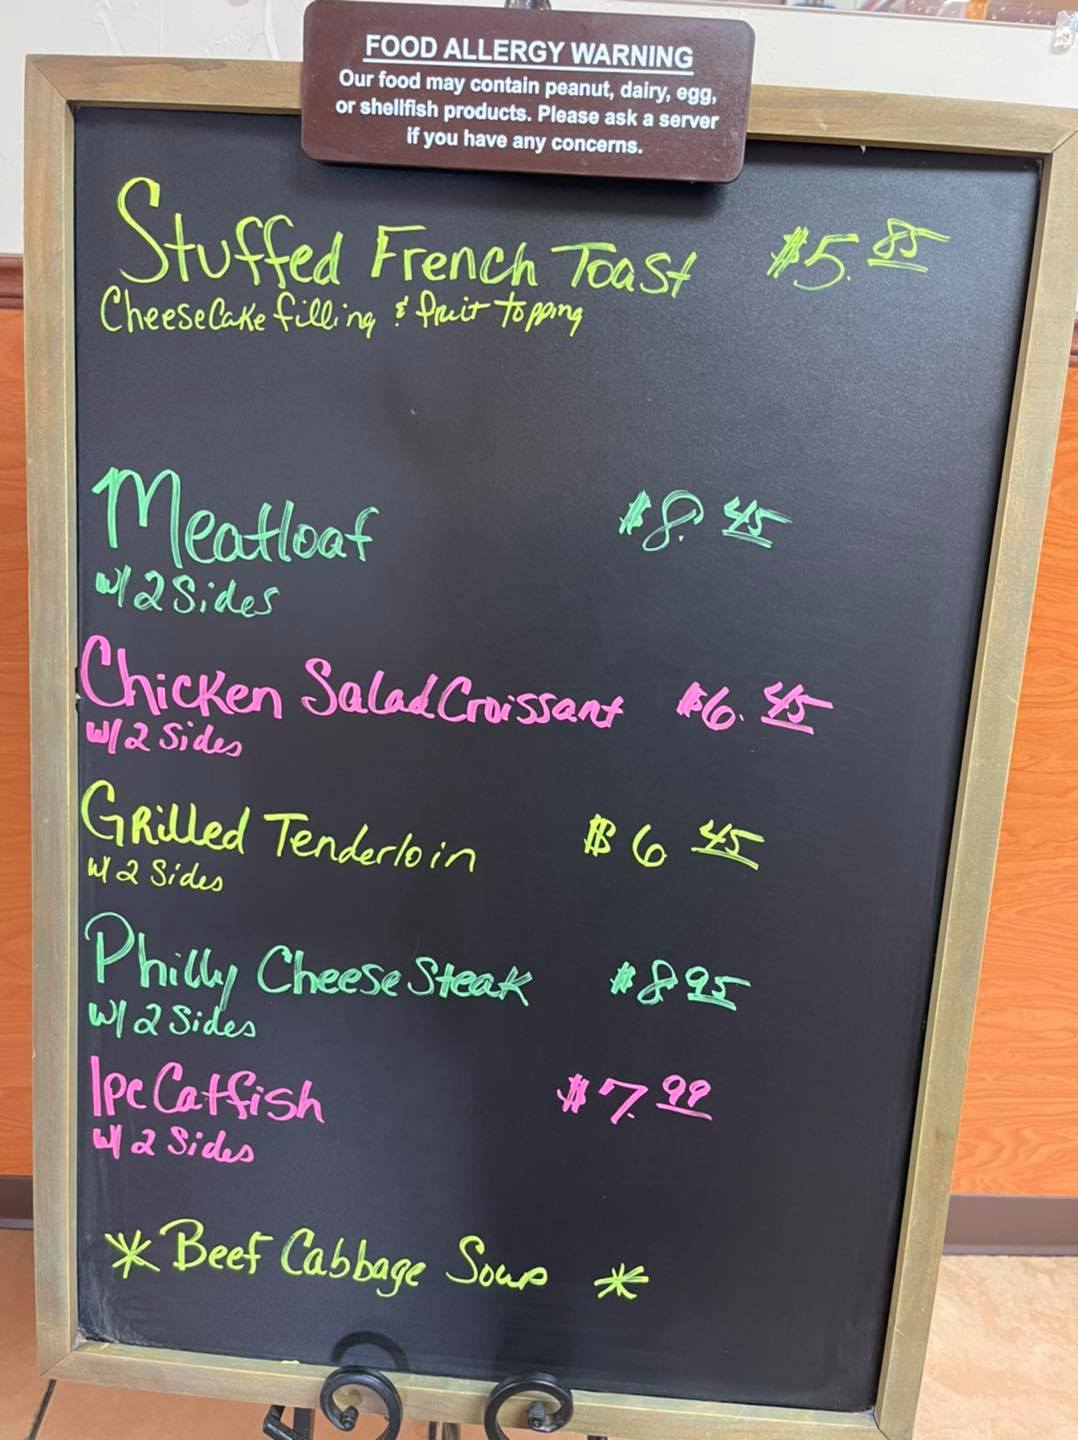 FOOD ALLERGY WARNING
Our food may contain peanut, dairy, egg,
or shellfish products. Please ask a server
if you have any concerns.
Stuffed French Toast $5.85
CheeseCake filling & fruit topping
Meatloaf $8.45
w/2 Sides
Chicken Salad Croissant $6.45
w/2 Sides
Grilled Tenderloin $6.45
w/2 Sides
Philly Cheese Steak $8.95
w/2 Sides
1pc Catfish $7.99
w/2 Sides
* Beef Cabbage Soup *